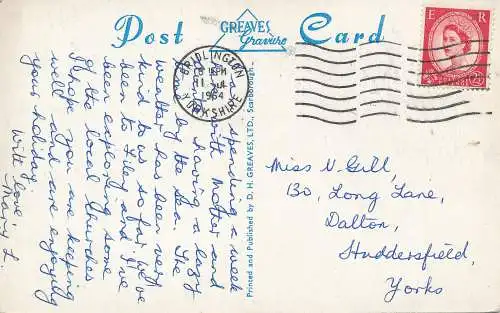 Post Card
GREAVES
Gravure
E R
BRIDLINGTON
11
1964
YORKSHIRE
spending a week
with Mother and
having a lazy
by the Sea. The
weather has been very
kind to us so far. We've
been to Filey and I've
been exploring some
of the local Churches.
I hope you are keeping
well and are enjoying
your holiday.
With love,
Mary L.
Printed and Published by D. H. GREAVES, LTD., Scarborough.
Miss N. Gill,
130, Long Lane,
Dalton,
Huddersfield,
Yorks